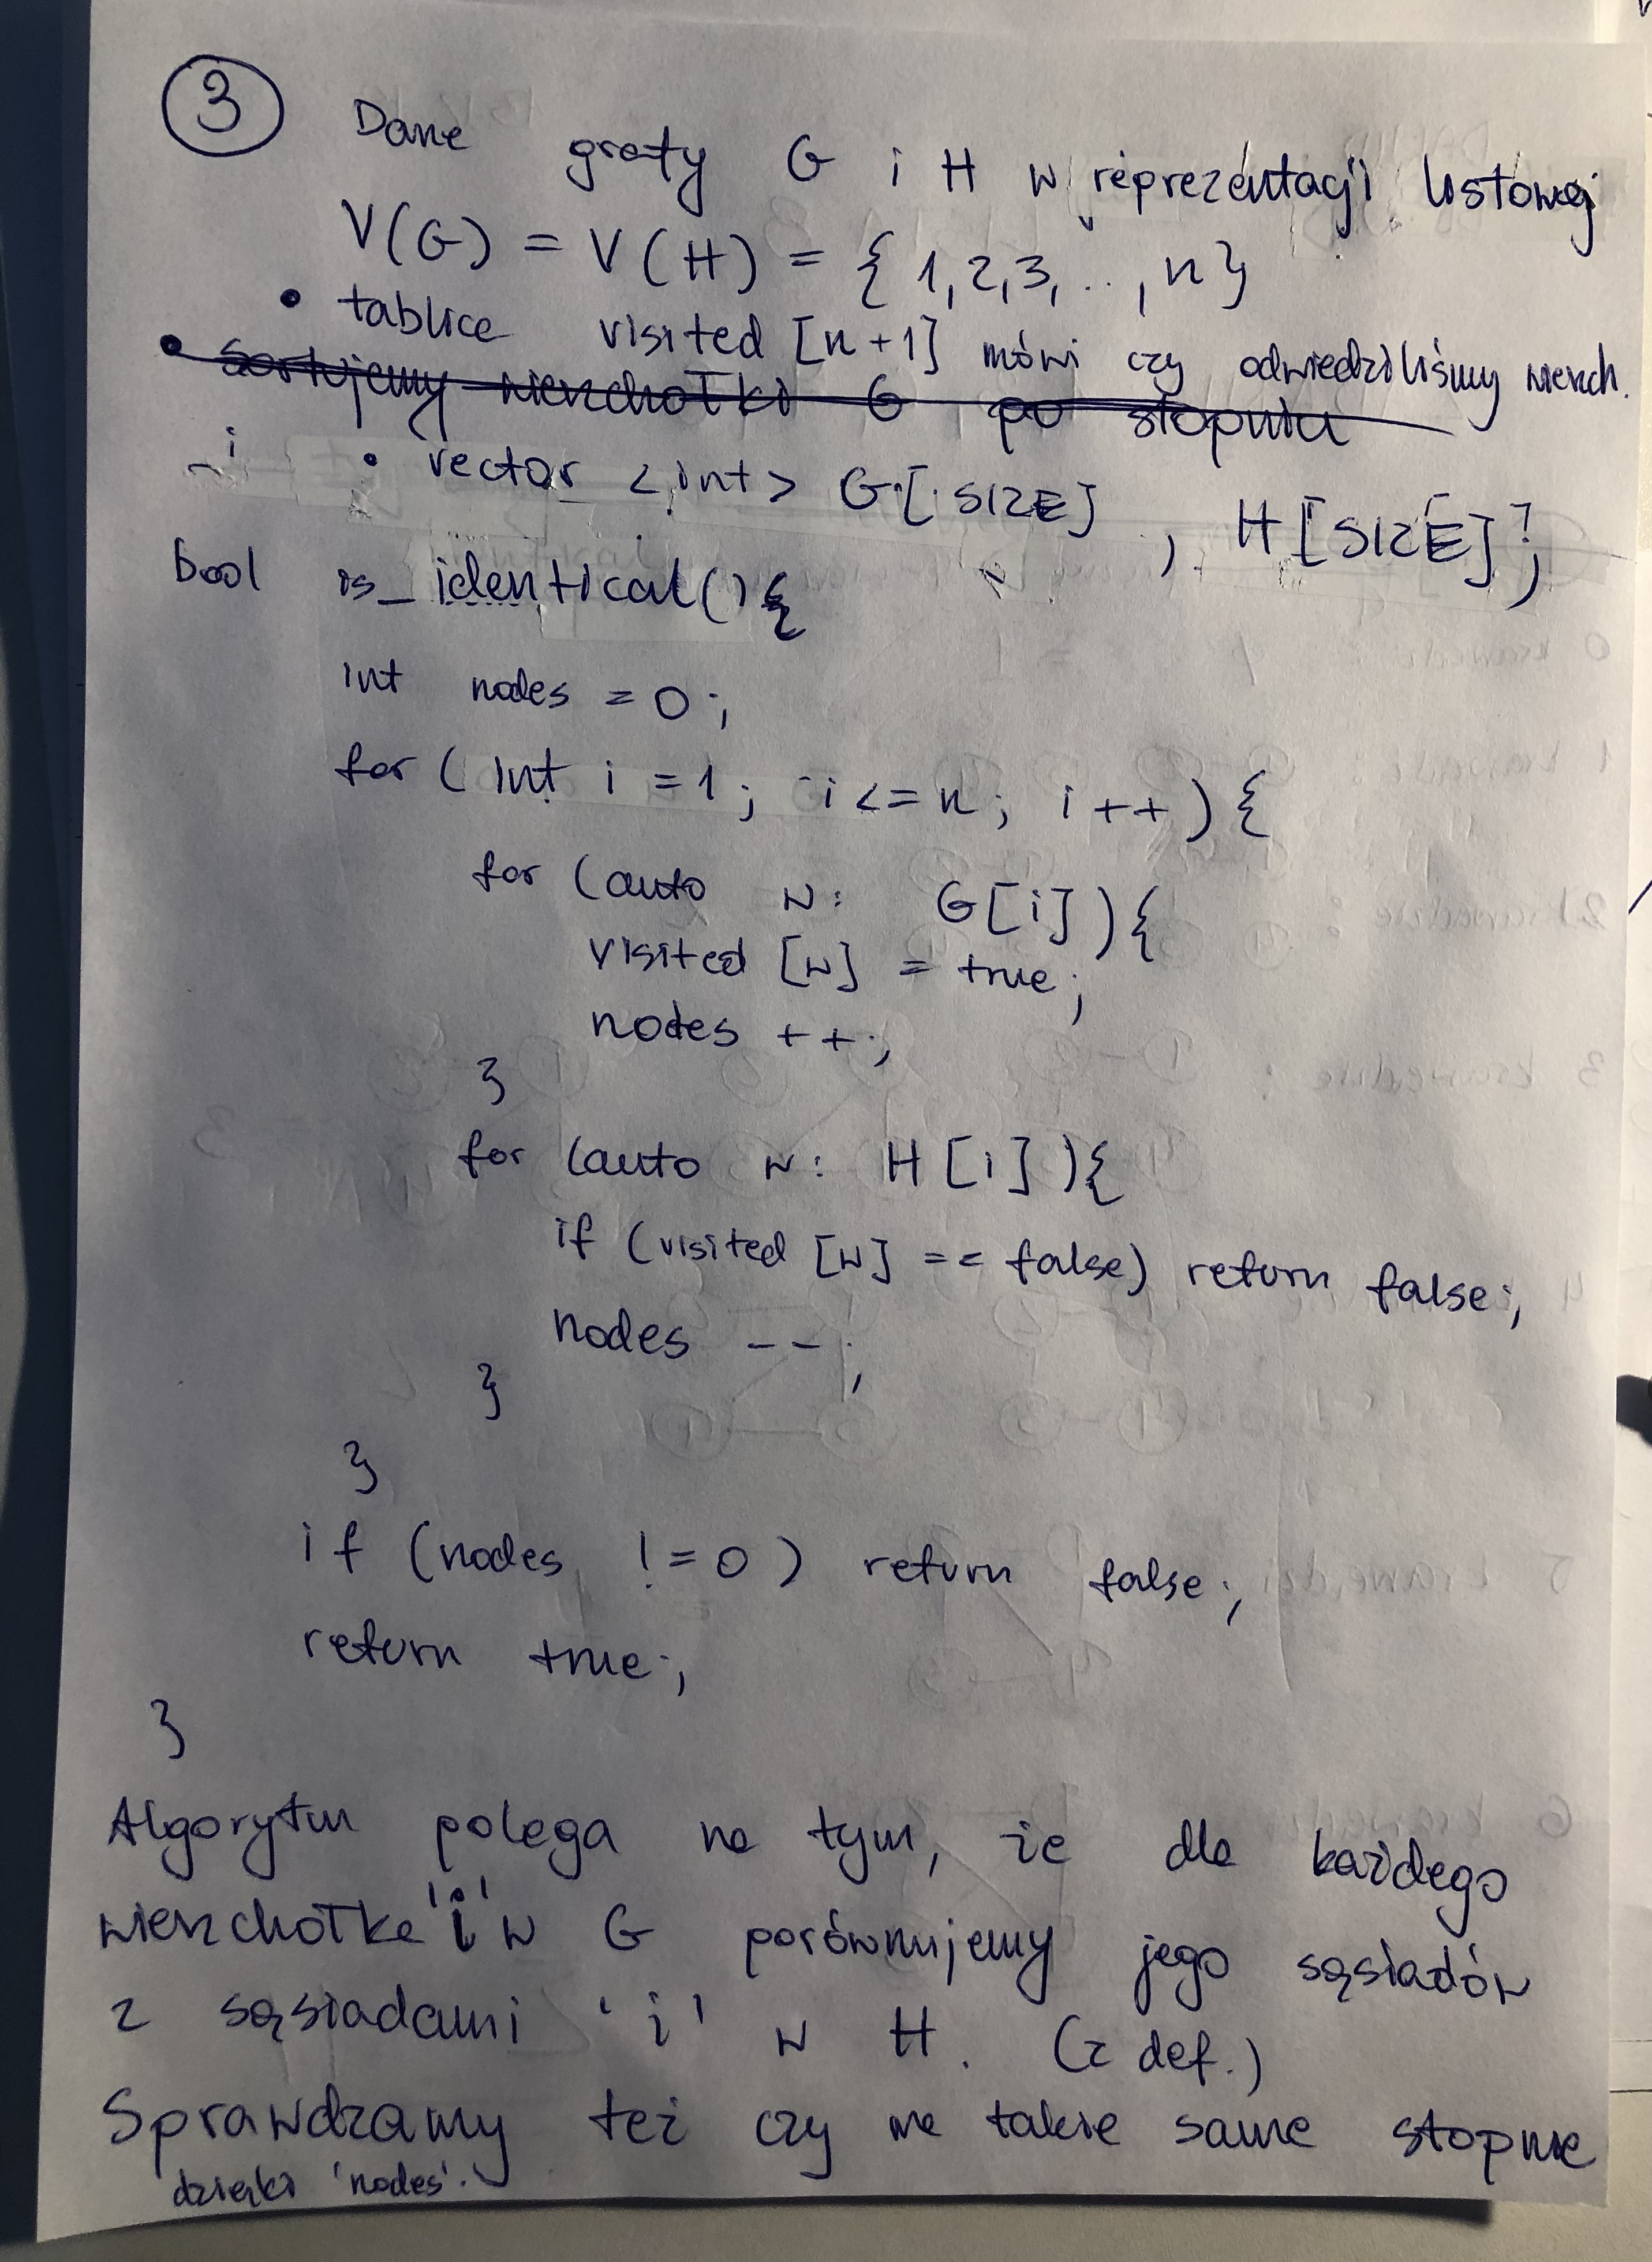 3 Dane grafy G i H w reprezentacji listowej
V(G) = V(H) = { 1,2,3, .., n }
• tablice visited [n+1] mówi czy odwiedziliśmy wierzch.
• sortujemy wierzchołki G po stopniu
• vector <int> G[SIZE], H[SIZE];
bool is_identical(){
int nodes = 0;
for ( int i = 1; i <= n; i++ ) {
for (auto w: G[i]){
visited [w] = true;
nodes ++;
}
for (auto w: H[i]){
if (visited [w] == false) return false;
nodes --;
}
}
if (nodes != 0) return false;
return true;
}
Algorytm polega na tym, że dla każdego
wierzchołka 'i' w G porównujemy jego sąsiadów
z sąsiadami 'i' w H. (z def.)
Sprawdzamy też czy ma takie same stopnie
dzięki 'nodes'.